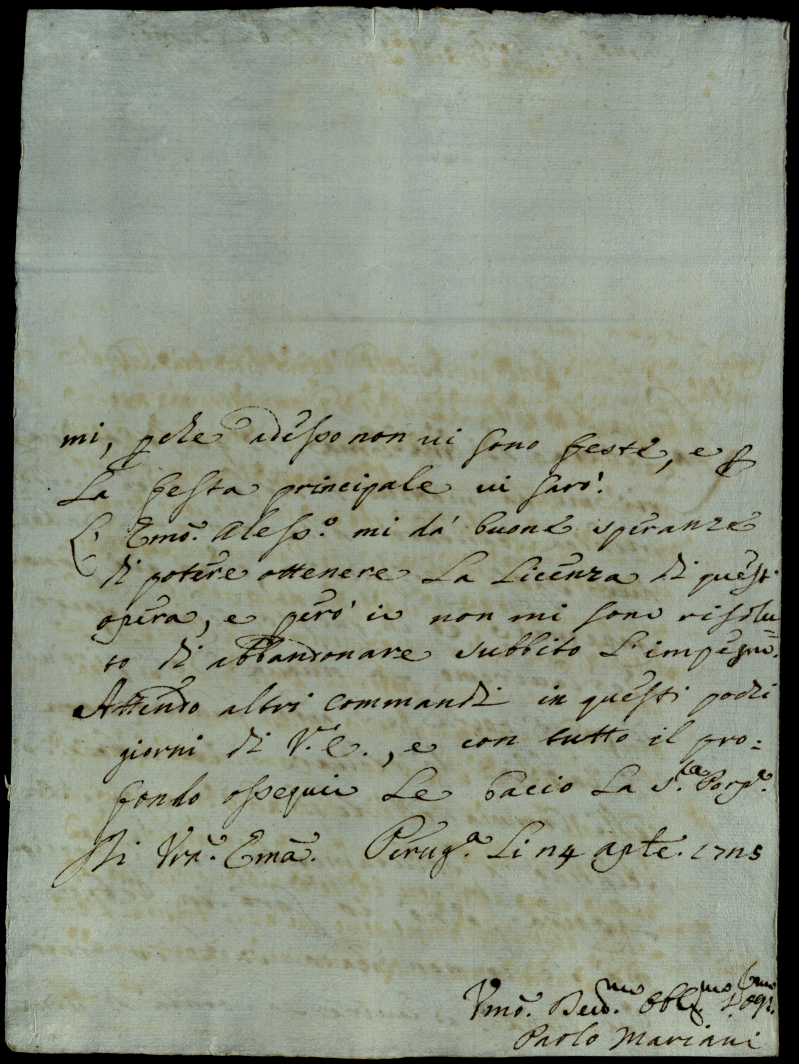 mi, perche adesso non vi sono feste, e p
La festa principale vi sarò.
L'Emõ. Aless.o mi dà buone speranze
di potere ottenere La Licenza di quest'
opera, e però io non mi sono risolu
to di abbandonare subbito L'impegno.
Attendo altri commandi in questi pochi
giorni di V.E., e con tutto il pro=
fondo ossequio Le bacio La S.ta Porp.a
Di Vrã. Emã. Perug.a Li 24 aple. 1725
Vmõ. Dev.mo Obl.mo
Paolo Mariani